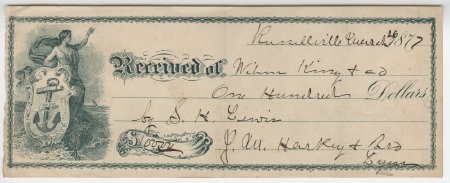 Russellville March 26 1877
Received of Wilson King & Co
One Hundred Dollars
by S. H. Lewis
J. M. Harkey & Bro